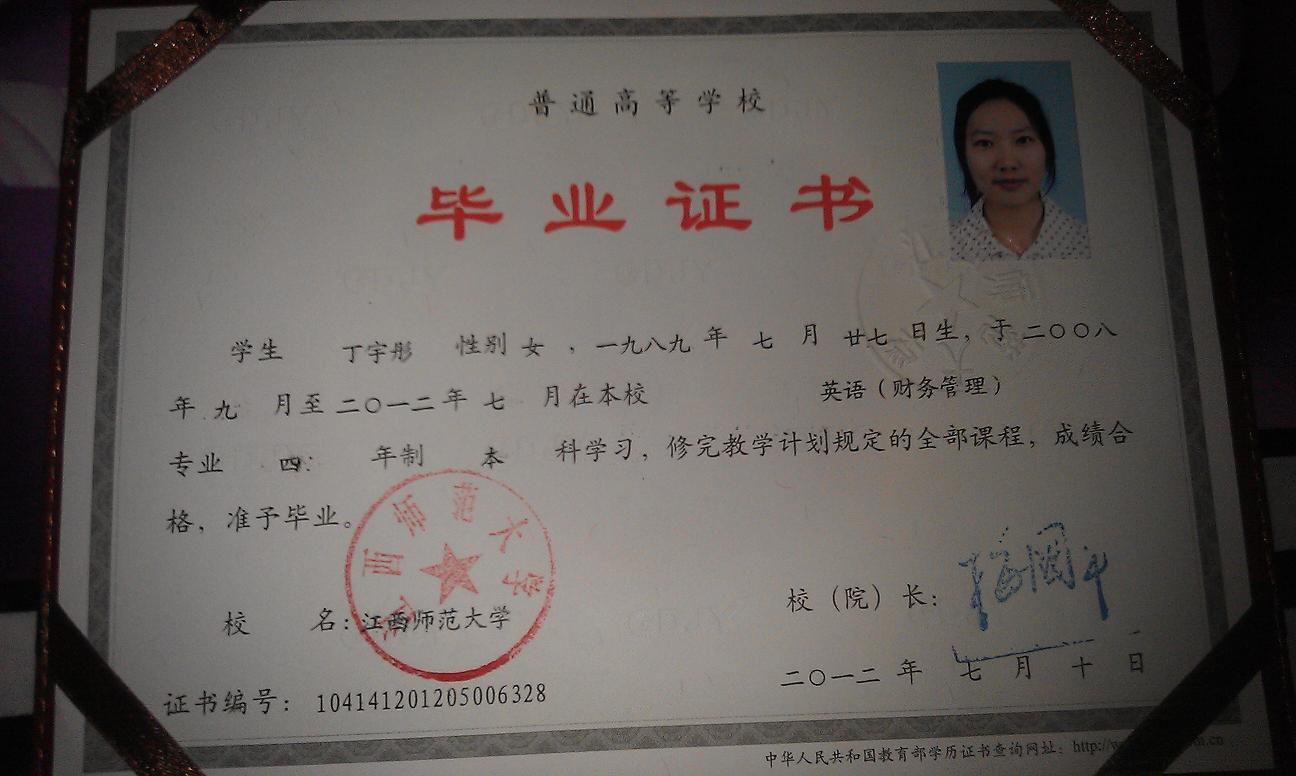 普通高等学校
毕业证书
学生 丁宇彤 性别 女，一九八九 年 七 月 廿七 日生，于 二〇〇八
年 九 月至 二〇一二 年 七 月在本校 英语（财务管理）
专业 四 年制 本 科学习，修完教学计划规定的全部课程，成绩合
格，准予毕业。
江西师范大学
校 名：江西师范大学
校（院）长：
二〇一二 年 七 月 十 日
证书编号：104141201205006328
中华人民共和国教育部学历证书查询网址：http://